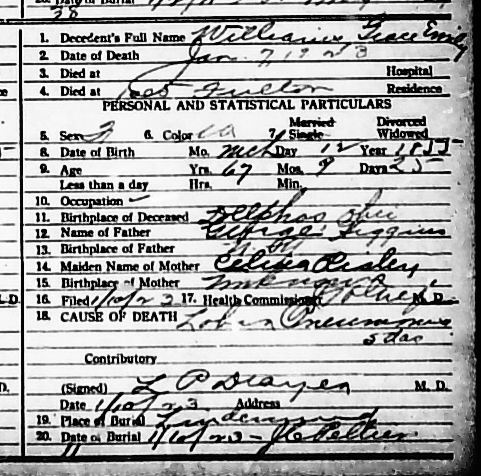 38
20. Date of Burial
1. Decedent's Full Name Williams Grace Emily
2. Date of Death Jan 7, 1923
3. Died at Hospital
4. Died at Fulton Residence
PERSONAL AND STATISTICAL PARTICULARS
Married Divorced
5. Sex F 6. Color 7. Single Widowed
8. Date of Birth Mo. Mch Day 12 Year 1855
9. Age Yrs. 67 Mos. 9 Days 25
Less than a day Hrs. Min.
10. Occupation
11. Birthplace of Deceased Delphos Ohio
12. Name of Father George Figgins
13. Birthplace of Father
14. Maiden Name of Mother Celina Risley
15. Birthplace of Mother Unknown
16. Filed 1/10/23 17. Health Commissioner M. D.
18. CAUSE OF DEATH Lobar Pneumonia
5 das
Contributory
(Signed) L P Drayer M. D.
Date 1/10/23 Address
19. Place of Burial Lindenwood
20. Date of Burial 1/10/23 - J C Peltier